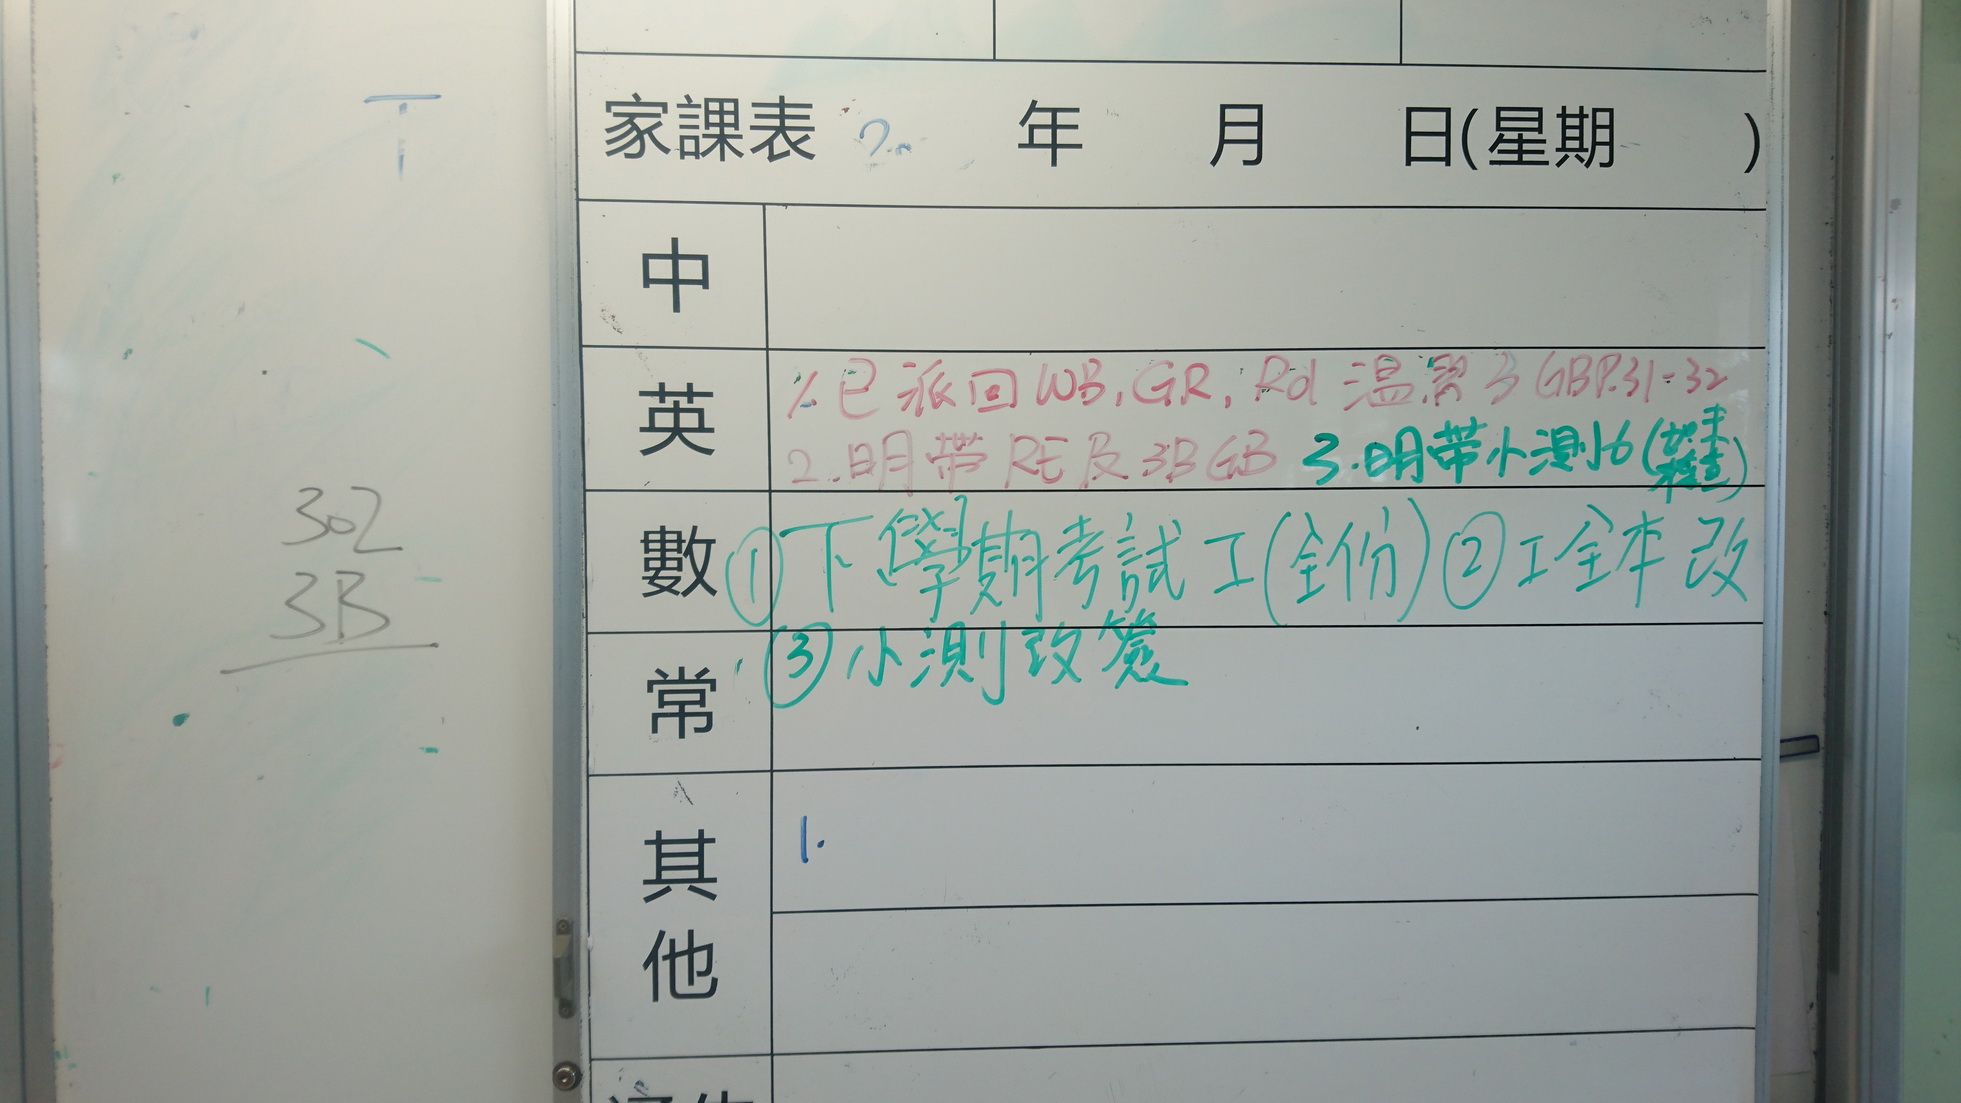 T
302
3B
家課表 2. 年 月 日(星期 )
中
英
1.已派回WB,GR,Rd 溫習3GBP.31-32
2.明帶RE及3BGB 3.明帶小測6(如未檢查)
數
①下學期考試工(全份)②工全本改
③小測改簽
常
其他
1.